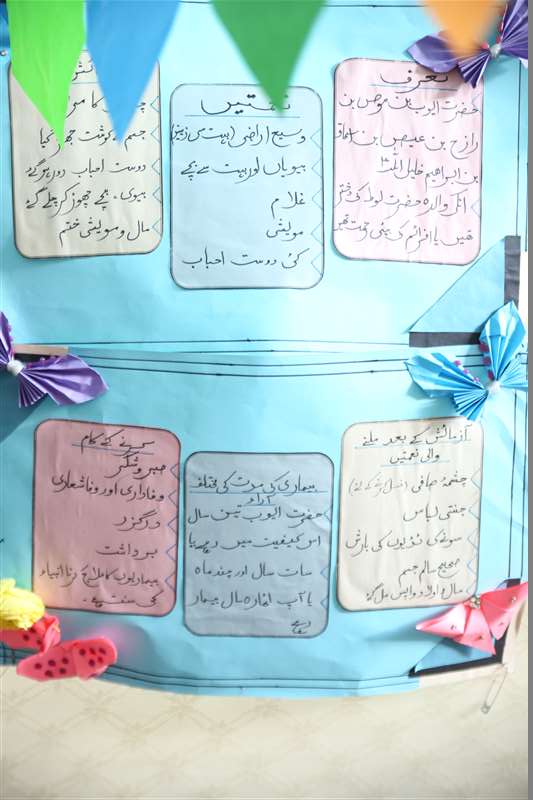 تعرف
حضرت ایوب بن موص بن
رازح بن عیص بن اسحاق
بن ابراہیم خلیل اللہ
انکی والدہ حضرت لوط کی بیٹی
تھیں یا افرائم کی بیٹی رحمت تھیں
نعمتیں
وسیع اراضی (بہت سی زمینیں)
بیویاں اور بہت سے بچے
غلام
مویشی
کئی دوست احباب
جسم سے گوشت جھڑ گیا
دوست احباب دور ہو گئے
بیوی، بچے چھوڑ کر چلے گئے
مال و مویشی ختم
آزمائش کے بعد ملنے
والی نعمتیں
چشمۂ صافی (غسل کرنے کے لئے)
جنتی لباس
سونے کی ٹڈیوں کی بارش
صحیح سالم جسم
مال و اولاد واپس مل گئے
بیماری کی مدت کی مختلف
آراء
حضرت ایوب تین سال
اس کیفیت میں رہے یا
سات سال اور چند ماہ
یا آپ اٹھارہ سال بیمار
رہے
سیکھنے کے کام
صبر و شکر
وفاداری اور وفا شعاری
درگزر
برداشت
بیماریوں کا علاج کرنا انبیاء
کی سنت ہے